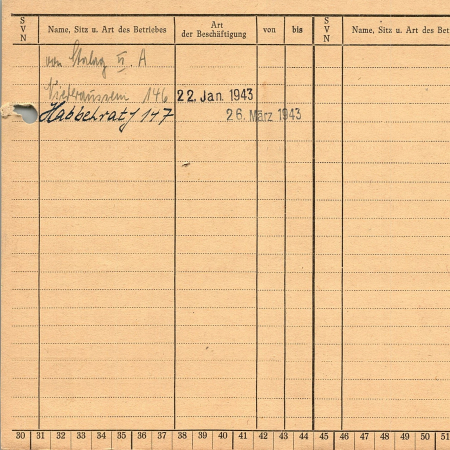 S V N Name, Sitz u. Art des Betriebes Art der Beschäftigung von bis S V N Name, Sitz u. Art des Bet
von Stalag VI A
Niederaussem 146 22. Jan. 1943
Habbelrath 147 26. März 1943
30 31 32 33 34 35 36 37 38 39 40 41 42 43 44 45 46 47 48 49 50 51